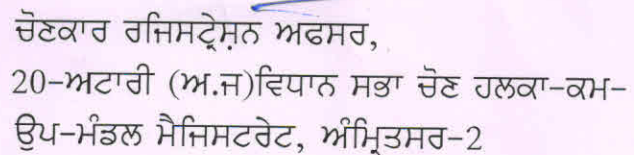 ਚੋਣਕਾਰ ਰਜਿਸਟ੍ਰੇਸ਼ਨ ਅਫਸਰ,
20-ਅਟਾਰੀ (ਅ.ਜ)ਵਿਧਾਨ ਸਭਾ ਚੋਣ ਹਲਕਾ-ਕਮ-
ਉਪ-ਮੰਡਲ ਮੈਜਿਸਟਰੇਟ, ਅੰਮ੍ਰਿਤਸਰ-2